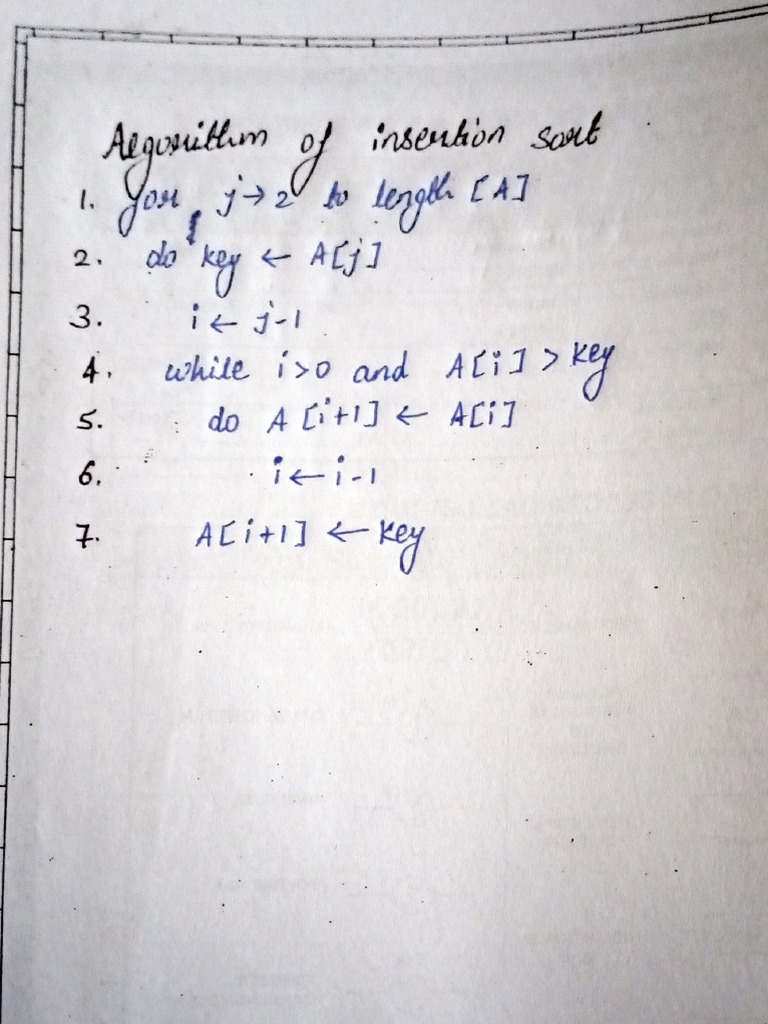 Algorithm of insertion sort
1. for j → 2 to length [A]
2. do key ← A[j]
3. i ← j-1
4. while i>0 and A[i] > key
5. do A [i+1] ← A[i]
6. i ← i-1
7. A[i+1] ← key